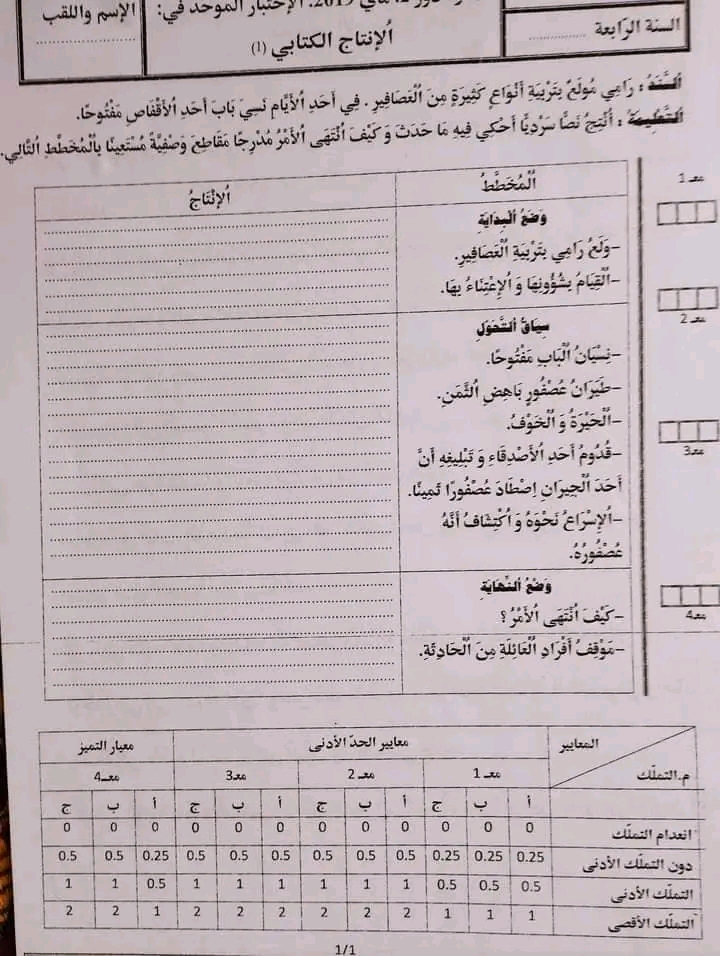 الإسم واللقب
2019. الإختبار الموحد في:
الإنتاج الكتابي (1)
السنة الرّابعة ............
السَّنَدُ : رَامِي مُولَعٌ بِتَرْبِيَةِ أَنْوَاعٍ كَثِيرَةٍ مِنَ الْعَصَافِيرِ . فِي أَحَدِ الْأَيَّامِ نَسِيَ بَابَ أَحَدِ الْأَقْفَاصِ مَفْتُوحًا.
التَّعْلِيمَةُ : أُنْتِجُ نَصًّا سَرْدِيًّا أَحْكِي فِيهِ مَا حَدَثَ وَ كَيْفَ انْتَهَى الْأَمْرُ مُدْرِجًا مَقَاطِعَ وَصْفِيَّةً مُسْتَعِينًا بِالْمُخَطَّطِ التَّالِي.
معـ 1
الْمُخَطَّطُ الإِنْتَاجُ
وَضْعُ الْبِدَايَةِ
-وَلَعُ رَامِي بِتَرْبِيَةِ الْعَصَافِيرِ.
-الْقِيَامُ بِشُؤُونِهَا وَ الْإِعْتِنَاءُ بِهَا.
معـ 2
سِيَاقُ التَّحَوُّلِ
-نِسْيَانُ الْبَابِ مَفْتُوحًا.
-طَيَرَانُ عُصْفُورٍ بَاهِضِ الثَّمَنِ.
-الْحَيْرَةُ وَ الْخَوْفُ.
معـ3
-قُدُومُ أَحَدِ الْأَصْدِقَاءِ وَ تَبْلِيغِهِ أَنَّ
أَحَدَ الْجِيرَانِ اِصْطَادَ عُصْفُورًا ثَمِينًا.
-الْإِسْرَاعُ نَحْوَهُ وَ اكْتِشَافُ أَنَّهُ
عُصْفُورُهُ.
وَضْعُ النِّهَايَةِ
-كَيْفَ انْتَهَى الْأَمْرُ ؟
معـ4
-مَوْقِفُ أَفْرَادِ الْعَائِلَةِ مِنَ الْحَادِثَةِ.
المعايير معايير الحدّ الأدنى معيار التميز
م.التملّك معـ 1 معـ 2 معـ3 معـ4
أ ب ج أ ب ج أ ب ج أ ب ج
انعدام التملّك 0 0 0 0 0 0 0 0 0 0 0 0
دون التملّك الأدنى 0.25 0.25 0.25 0.5 0.5 0.5 0.5 0.5 0.5 0.25 0.5 0.5
التملّك الأدنى 0.5 0.5 0.5 1 1 1 1 1 1 0.5 1 1
التملّك الأقصى 1 1 1 2 2 2 2 2 2 1 2 2
1/1